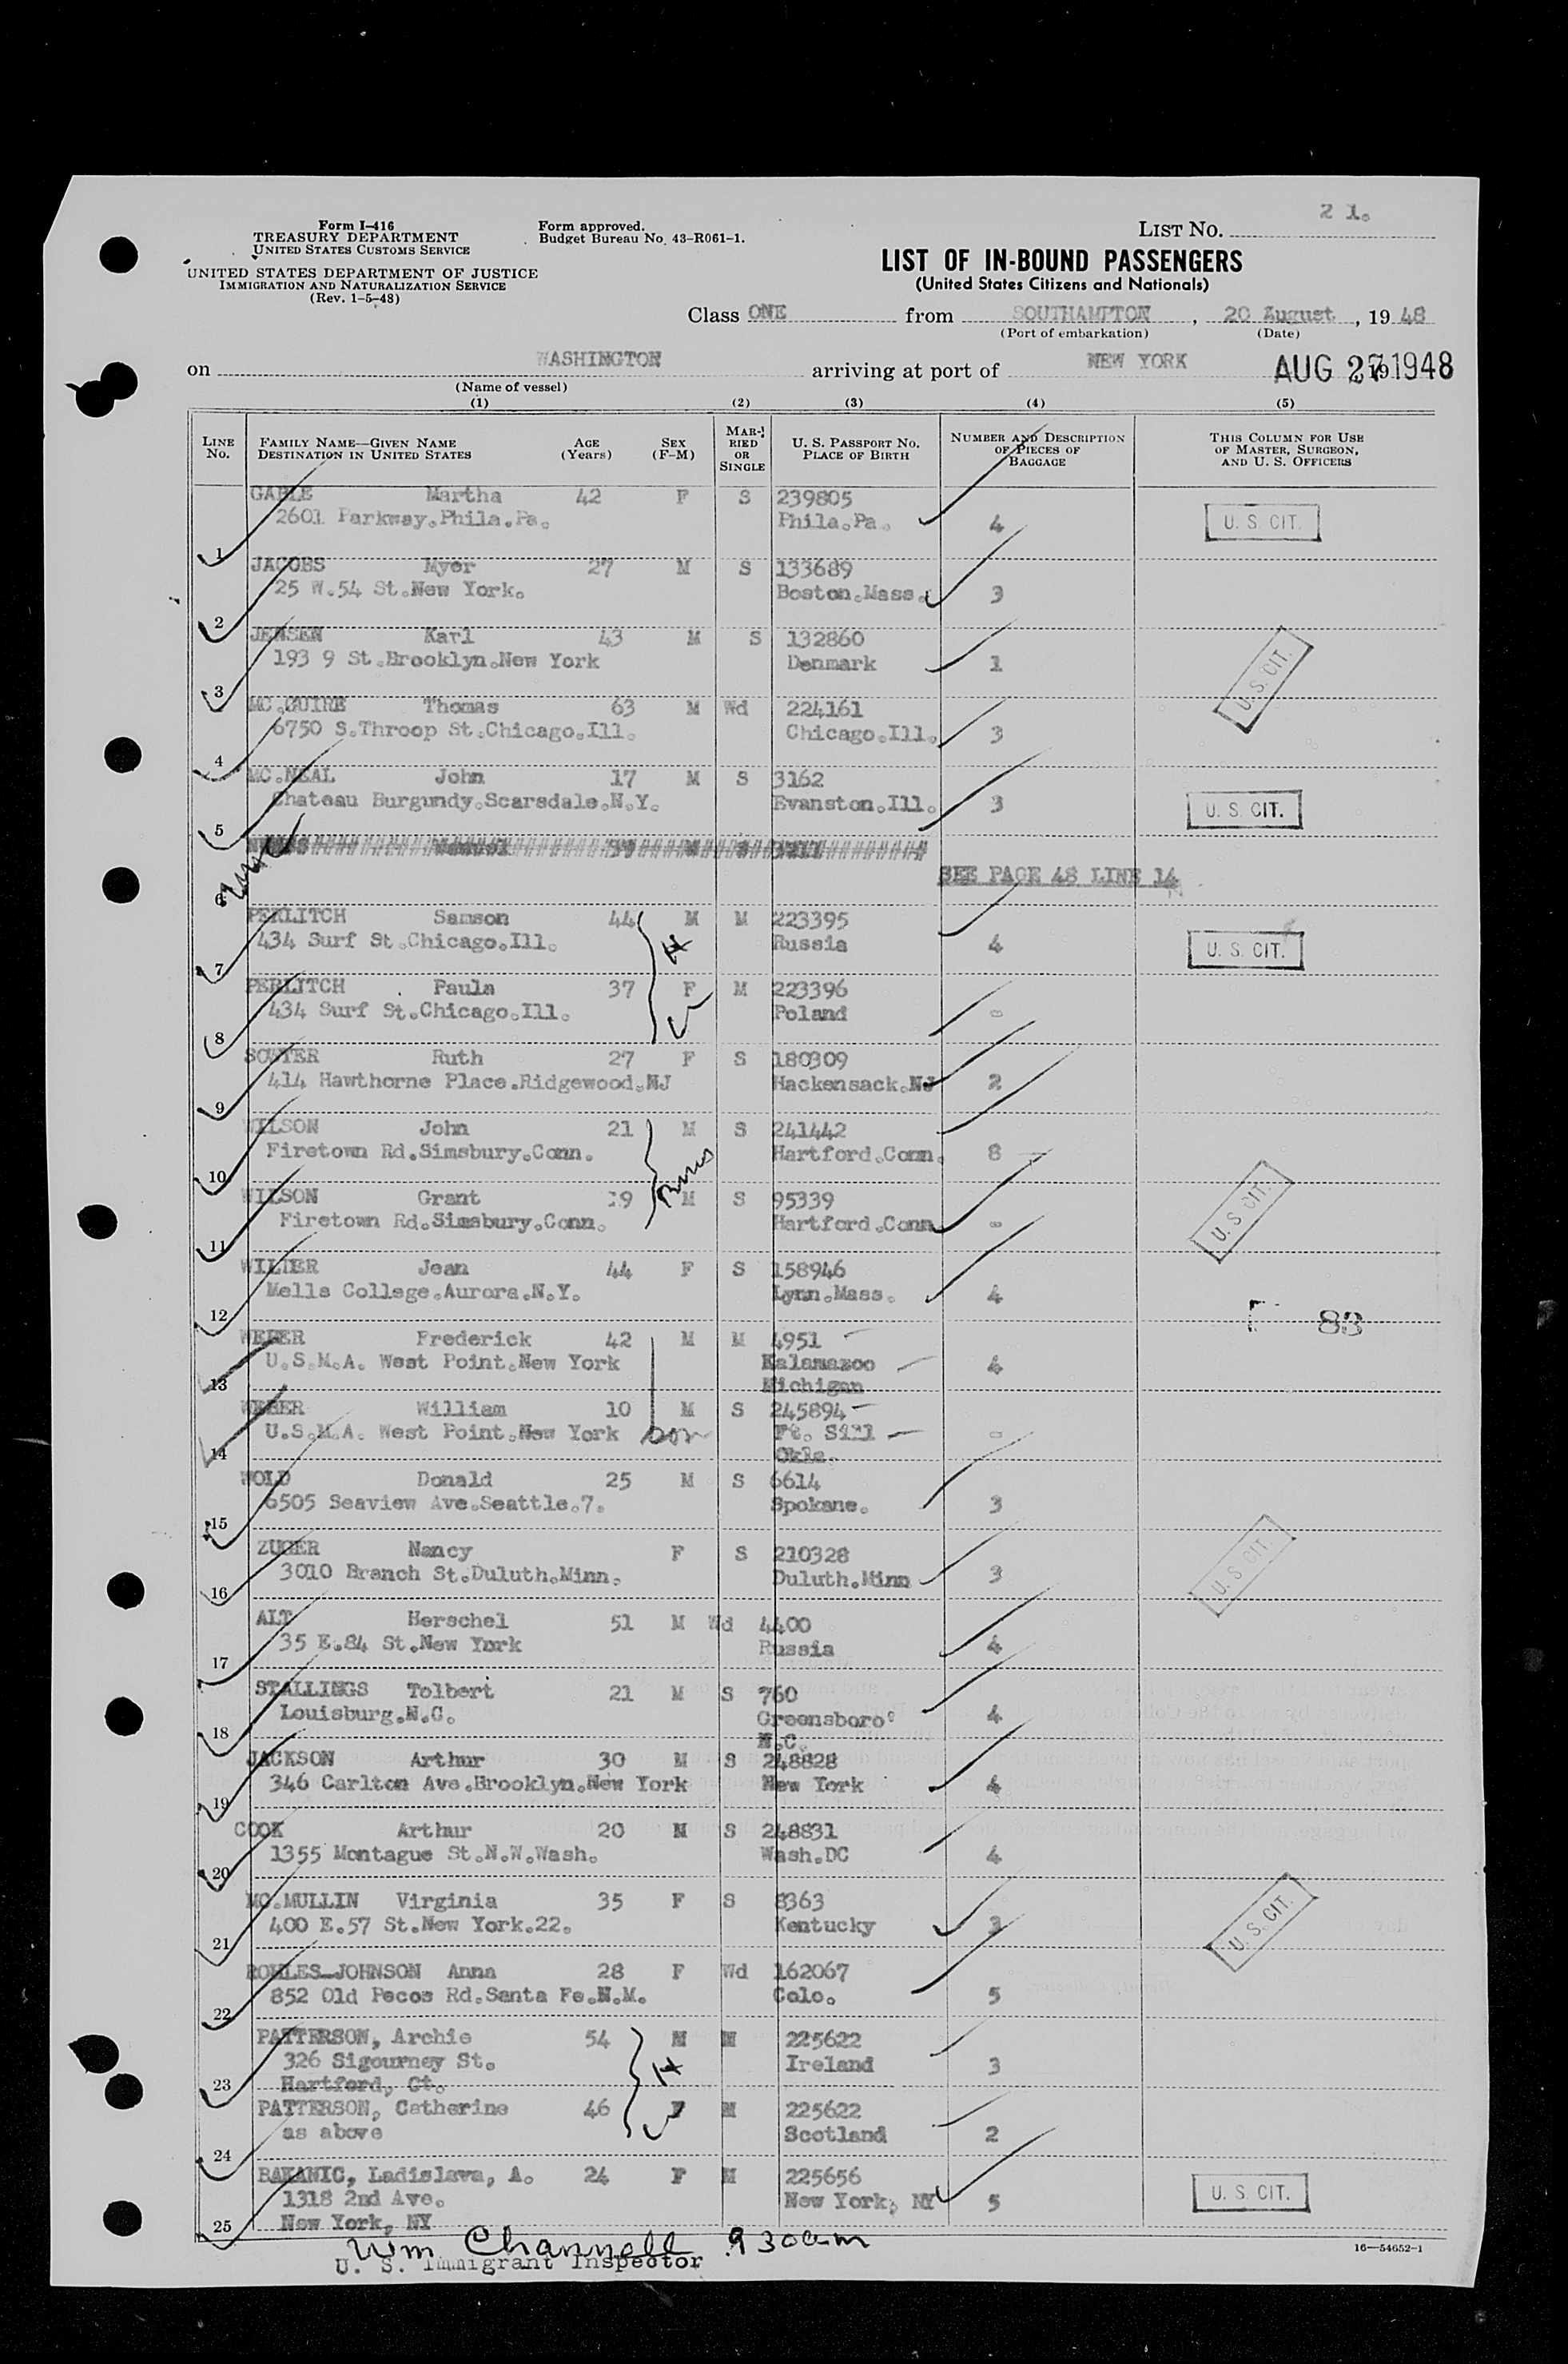 Form I-416
TREASURY DEPARTMENT
UNITED STATES CUSTOMS SERVICE
UNITED STATES DEPARTMENT OF JUSTICE
IMMIGRATION AND NATURALIZATION SERVICE
(Rev. 1-5-48)
Form approved.
Budget Bureau No. 43-R061-1.
LIST No. 21.
LIST OF IN-BOUND PASSENGERS
(United States Citizens and Nationals)
Class ONE from SOUTHAMPTON, 20 August, 1948
(Port of embarkation) (Date)
on WASHINGTON arriving at port of NEW YORK AUG 27 1948
(Name of vessel)
(1) (2) (3) (4) (5)
LINE No. FAMILY NAME—GIVEN NAME DESTINATION IN UNITED STATES AGE (Years) SEX (F-M) MARRIED OR SINGLE U. S. PASSPORT NO. PLACE OF BIRTH NUMBER AND DESCRIPTION OF PIECES OF BAGGAGE THIS COLUMN FOR USE OF MASTER, SURGEON, AND U. S. OFFICERS
GABLE Martha 42 F S 239805
1 2601 Parkway.Phila.Pa. Phila.Pa. 4 U. S. CIT.
JACOBS Myer 27 M S 133689
2 25 W.54 St.New York. Boston.Mass. 3
JENSEN Karl 43 M S 132860
3 193 9 St.Brooklyn.New York Denmark 1 U. S. CIT.
MC.GUIRE Thomas 63 M Wd 224161
4 6750 S.Throop St.Chicago.Ill. Chicago.Ill. 3
MC.NEAL John 17 M S 3162
5 Chateau Burgundy.Scarsdale.N.Y. Evanston.Ill. 3 U. S. CIT.
6 SEE PAGE 48 LINE 14
PERLITCH Samson 44 M M 223395
7 434 Surf St.Chicago.Ill. H Russia 4 U. S. CIT.
PERLITCH Paula 37 F M 223396
8 434 Surf St.Chicago.Ill. W Poland -
SOUTER Ruth 27 F S 180309
9 414 Hawthorne Place.Ridgewood.NJ Hackensack.NJ 2
WILSON John 21 M S 241442
10 Firetown Rd.Simsbury.Conn. Hartford.Conn. 8
WILSON Grant 19 M S 95339
11 Firetown Rd.Simsbury.Conn. Hartford.Conn - U. S. CIT.
Jean 44 F S 158946
12 Wells College.Aurora.N.Y. Lynn.Mass. 4
83
WEBER Frederick 42 M M 4951
13 U.S.M.A. West Point.New York Kalamazoo 4
Michigan
WEBER William 10 M S 245894
14 U.S.M.A. West Point.New York son Ft. Sill -
Okla.
WOLD Donald 25 M S 6614
15 6505 Seaview Ave.Seattle.7. Spokane. 3
ZUGER Nancy F S 210328
16 3010 Branch St.Duluth.Minn. Duluth.Minn 3 U. S. CIT.
ALT Herschel 51 M Wd 4400
17 35 E.84 St.New York Russia 4
STALLINGS Tolbert 21 M S 760
18 Louisburg.N.C. Greensboro 4
N.C.
JACKSON Arthur 30 M S 248828
19 346 Carlton Ave.Brooklyn.New York New York 4
COOK Arthur 20 M S 248831
20 1355 Montague St.N.W.Wash. Wash.DC 4
MC.MULLIN Virginia 35 F S 8363
21 400 E.57 St.New York.22. Kentucky 3 U. S. CIT.
JOHNSON Anna 28 F Wd 162067
22 852 Old Pecos Rd.Santa Fe.N.M. Colo. 5
PATTERSON, Archie 54 M M 225622
326 Sigourney St. H Ireland 3
23 Hartford, Ct.
PATTERSON, Catherine 46 F M 225622
24 as above W Scotland 2
BAKANIC, Ladislava, A. 24 F M 225656
1318 2nd Ave. New York, NY 5 U. S. CIT.
25 New York, NY
Wm Channell 930am
U. S. Immigrant Inspector
16—54652-1